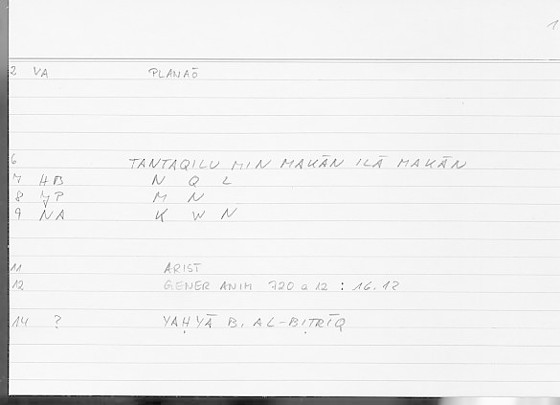 1
2 VA PLANAŌ
6 TANTAQILU MIN MAKĀN ILĀ MAKĀN
7 HB N Q L
8 P M N
9 NA K W N
11 ARIST
12 GENER ANIM 720 a 12 : 16.12
14 ? YAḤYĀ B. AL-BIṬRĪQ